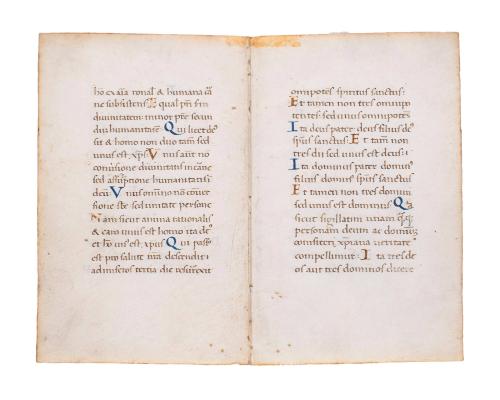 hõ ex aĩa rõnal & humana cã
ne subsistens Equal pr̃i sm̃
diuinitatem: minor pr̃e secun
du humanitatẽ Qui licet de
sit & homo non duo tam̃ sed
unus est xp̃s Vnus aut nõ
cõuersione diuinitatis in carne
sed assũptione humanitatis ĩ
deu Vnus omnino nõ cõuer
sione sbe sed unitate persone
Nam sicut anima rationalis
& caro unus est homo ita de
et hõ un est xpus Qui pass
est pro salute nr̃a descendit
ad inferos tertia die resurrexit
omnipotẽs spiritus sanctus:
Et tamen non tres omnipo
tentes: sed unus omnipotẽs:
Ita deus pater: deus filius ds
sp̃us sanctus: Et tam̃ non
tres dii sed unus est deus:
Ita dominus pater dominus
filius dominus sp̃us sanctus
Et tamen non tres domini
sed unus est dominus Qa
sicut sigillatim unam
personam deum ac dominũ
confiteri xp̃iana ueritate
compellimur: Ita tres de
os aut tres dominos dicere